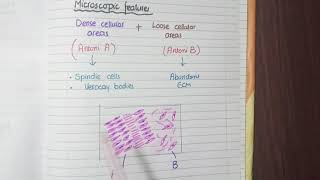 Microscopic features
Dense cellular + Loose cellular
areas areas
(Antoni A) (Antoni B)
• Spindle cells Abundant
• Verocay bodies ECM
B